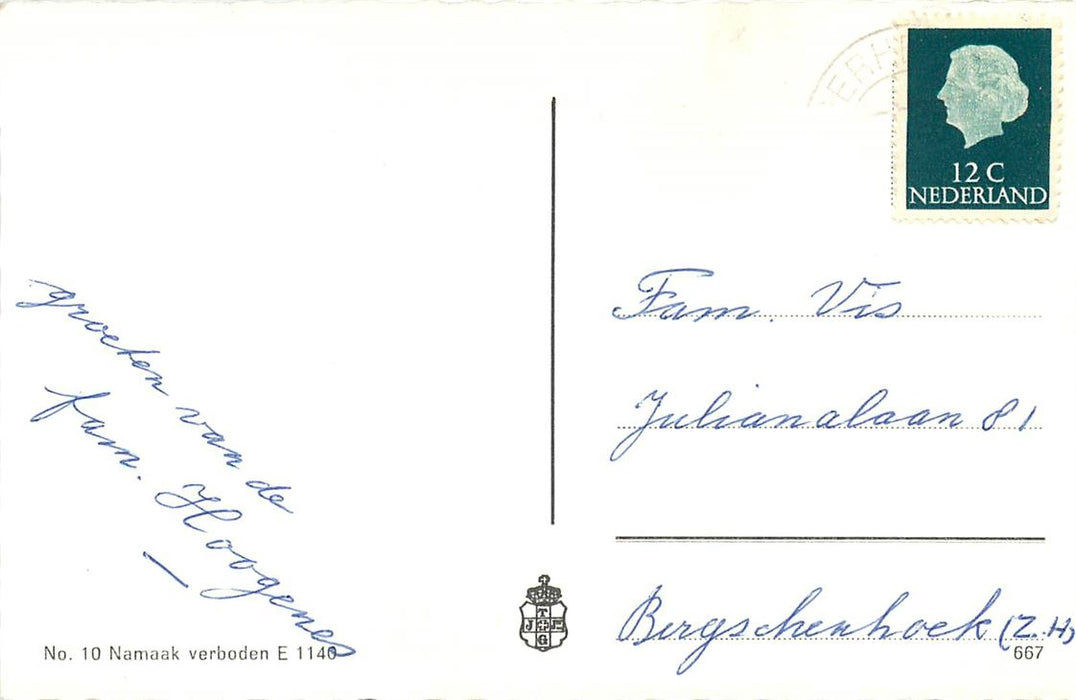 groeten van de
fam. Hoogenes
No. 10 Namaak verboden E 1140
12 C
NEDERLAND
Fam. Vis
Julianalaan 81
Bergschenhoek (Z.H)
667